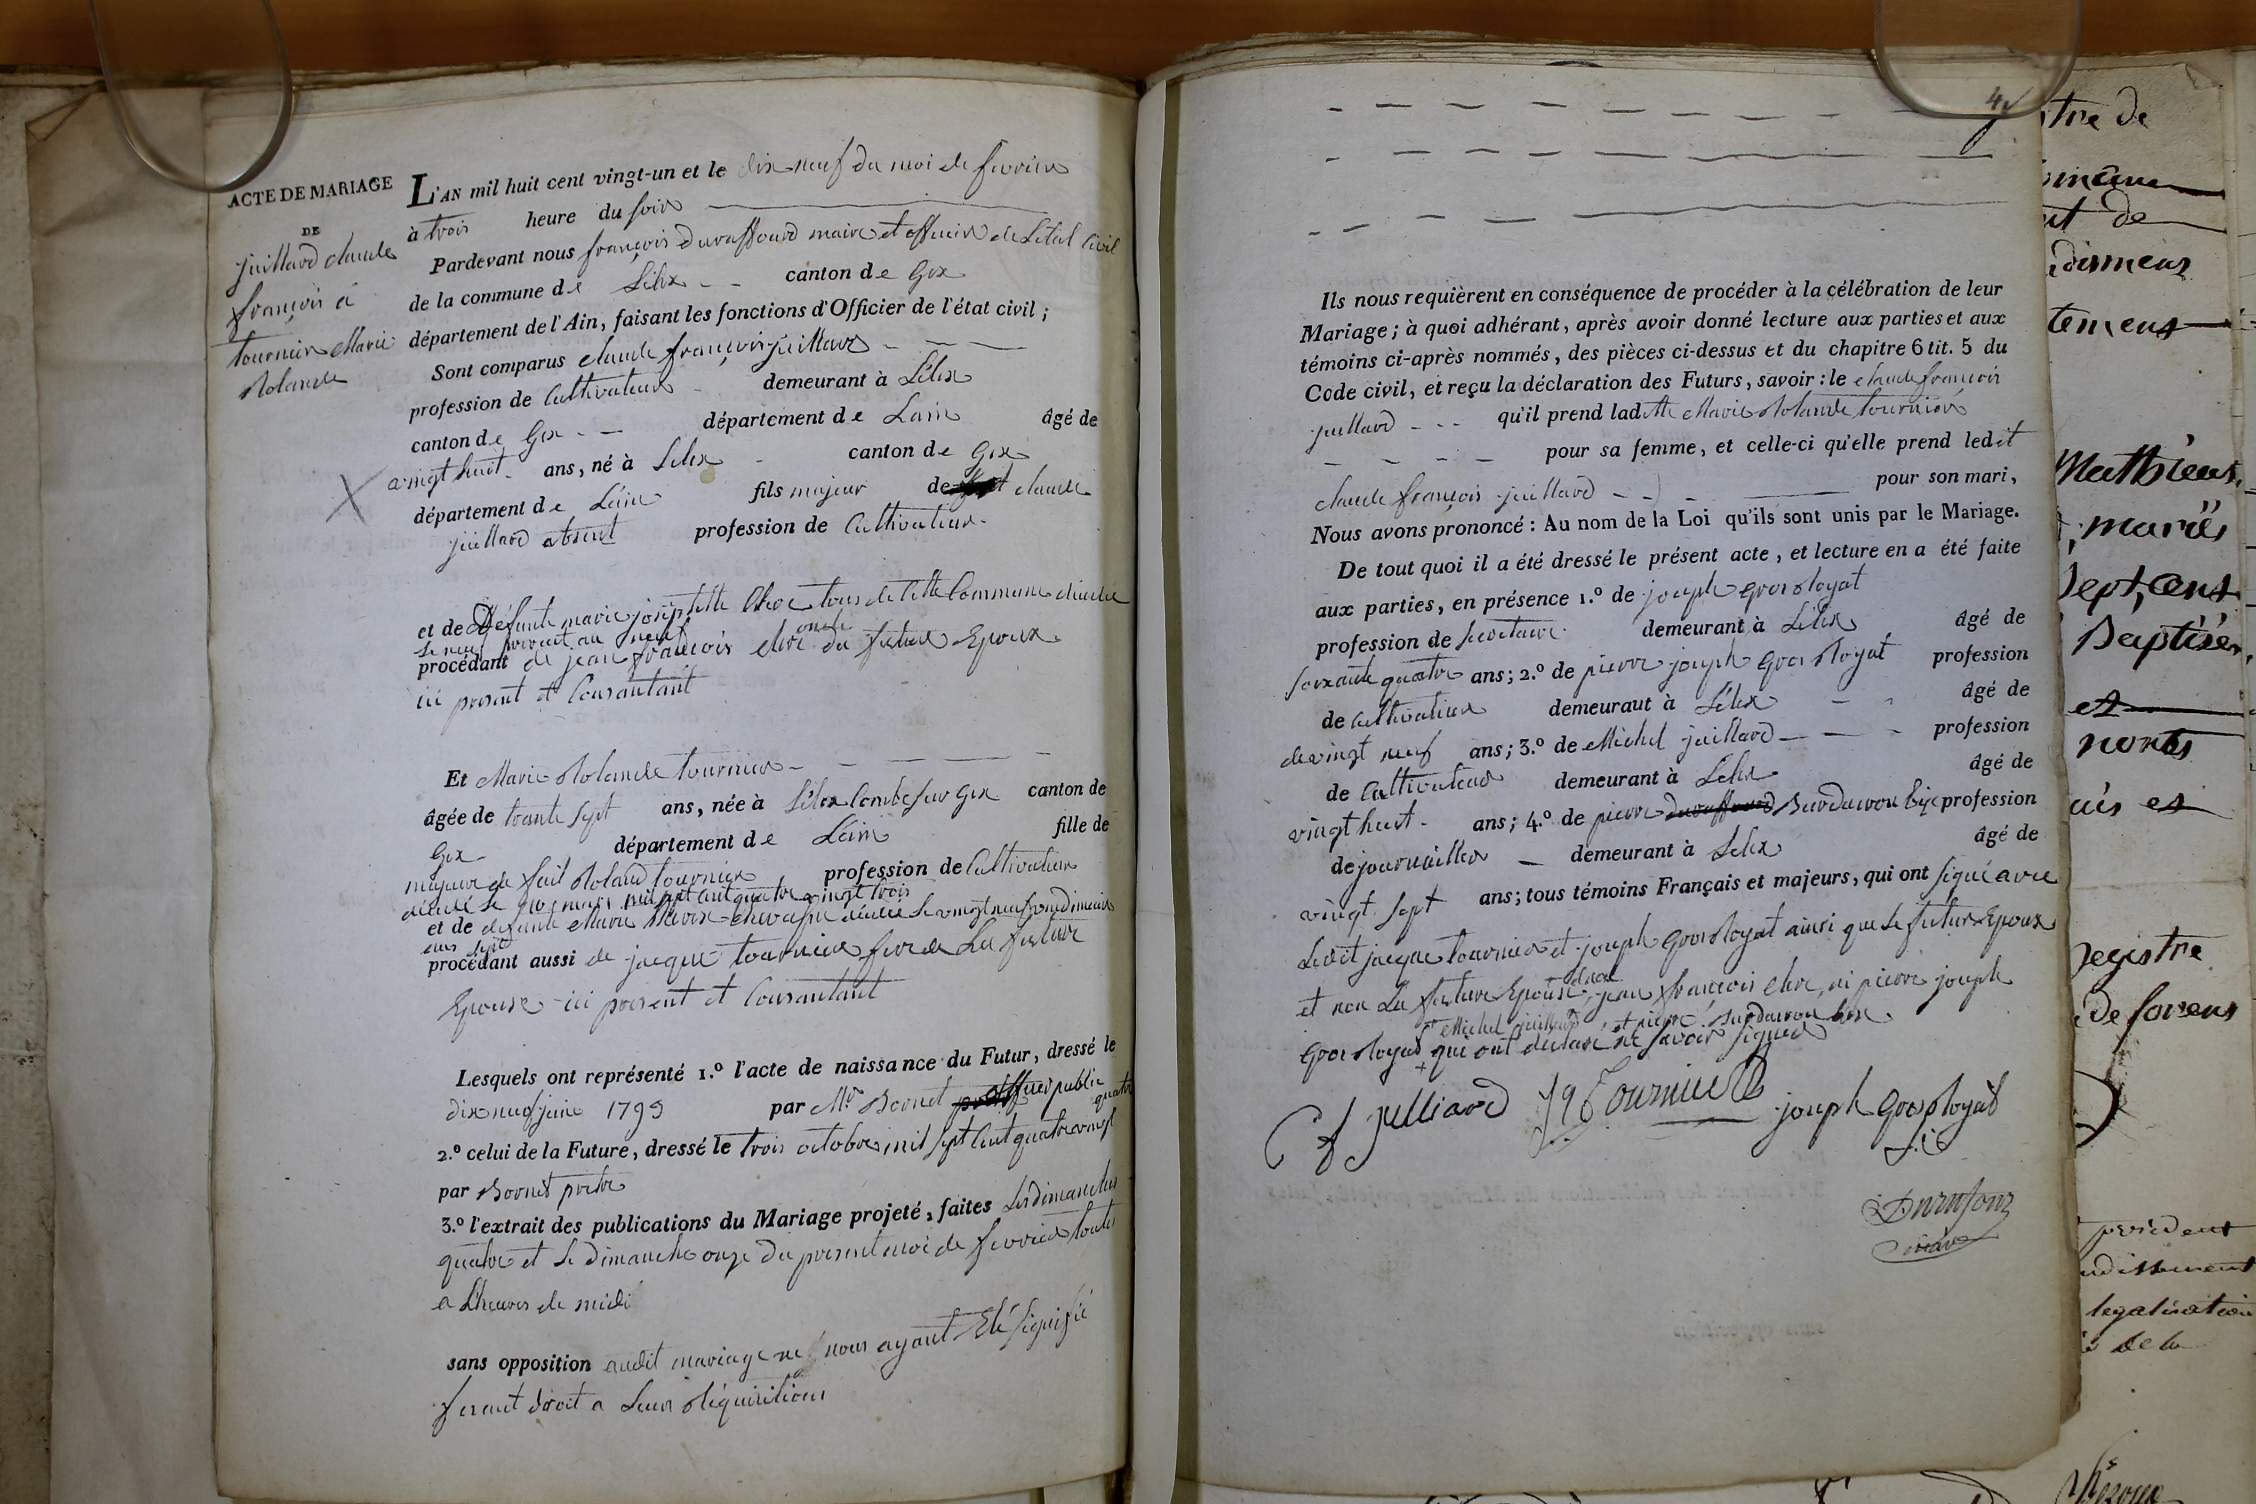 ACTE DE MARIAGE
DE
juillard claude
françois a
tournier Marie
Rolande
L'AN mil huit cent vingt-un et le dix neuf du moi de fevrier
à trois heure du soir
Pardevant nous françois duraffourd maire et officier de L'état Civil
de la commune de Lélex canton de Gex
département de l'Ain, faisant les fonctions d'Officier de l'état civil ;
Sont comparus claude françois juillard
profession de Cultivateur demeurant à Lélex
canton de Gex département de Lain âgé de
vingt huit ans, né à Lelex canton de Gex
département de Léain fils majeur de claude
juillard absent profession de Cultivateur
et de Défunte marie josephte Chre tous de Cette Commune
procédant de jean françois chre oncle du futur Epoux
ici present et Consantant
Et Marie Rolande tournier
âgée de trante sept ans, née à Lélex Combe sur Gex canton de
Gex département de Léain fille de
majeure de fait Roland tournier profession de Cultivateur
décédé le mars mil sept cent quatre vingt trois
et de defunte Marie décédée le vingt neuf vendimiaire
an sept
procédant aussi de jacque tournier frere de La future
Epouse ici present et Consantant
Lesquels ont représenté 1.º l'acte de naissance du Futur, dressé le
dix neuf juin 1793 par Mr Bornet officier public
2.º celui de la Future, dressé le trois octobre mil sept Cent quatre vingt quatre
par Bornet pretre
3.º l'extrait des publications du Mariage projeté, faites Les dimanches
quatre et le dimanche onze du present moi de fevrier toutes
a L'heures de midi
sans opposition audit mariage ne nous ayant Eté signifié
fesant droit a Leur Réquisitions
4
Ils nous requièrent en conséquence de procéder à la célébration de leur
Mariage ; à quoi adhérant, après avoir donné lecture aux parties et aux
témoins ci-après nommés, des pièces ci-dessus et du chapitre 6 tit. 5 du
Code civil, et reçu la déclaration des Futurs, savoir : le claude françois
juillard qu'il prend ladite Marie Rolande tournier
pour sa femme, et celle-ci qu'elle prend ledit
claude françois juillard pour son mari,
Nous avons prononcé : Au nom de la Loi qu'ils sont unis par le Mariage.
De tout quoi il a été dressé le présent acte, et lecture en a été faite
aux parties, en présence 1.º de joseph grosRoyat
profession de secretaire demeurant à Lélex âgé de
soixante quatre ans ; 2.º de pierre joseph GrosRoyat profession
de Cultivateur demeuraut à Lélex âgé de
de vingt neuf ans ; 3.º de Michel juillard profession
de Cultivateur demeurant à Lelex âgé de
vingt huit ans ; 4.º de pierre profession
de journaillier demeurant à Lelex âgé de
vingt sept ans ; tous témoins Français et majeurs, qui ont signé avec
Ledit jacque tournier et joseph GrosRoyat ainsi que le futur Epoux
et non La future Epouse, jean françois chre, ni pierre joseph
Michel juillard et pierre
GrosRoyat qui ont déclaré ne savoir signer
Cf julliard Jq Tournier joseph Grosroyat
Durafour
maire
stre de
ut de
temens
Mathieu
mariés
Sept, cent
Baptisés
et
registre
president
legalisation
de la